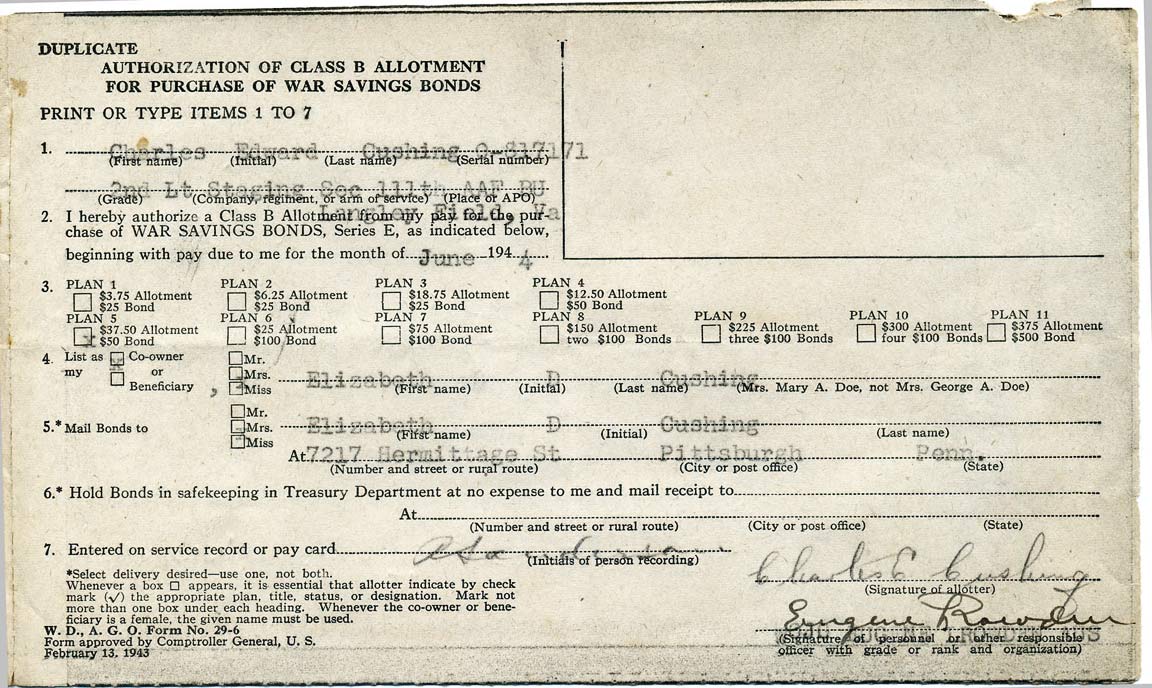 DUPLICATE
AUTHORIZATION OF CLASS B ALLOTMENT
FOR PURCHASE OF WAR SAVINGS BONDS
PRINT OR TYPE ITEMS 1 TO 7
1. Charles Edward Cushing O-817171
(First name) (Initial) (Last name) (Serial number)
2nd Lt Staging Sec 111th AAF BU
(Grade) (Company, regiment, or arm of service) (Place or APO)
Langley Field, Va
2. I hereby authorize a Class B Allotment from my pay for the pur-
chase of WAR SAVINGS BONDS, Series E, as indicated below,
beginning with pay due to me for the month of June 194 4
3. PLAN 1 PLAN 2 PLAN 3 PLAN 4
$3.75 Allotment $6.25 Allotment $18.75 Allotment $12.50 Allotment
$25 Bond $25 Bond $25 Bond $50 Bond
PLAN 5 PLAN 6 PLAN 7 PLAN 8 PLAN 9 PLAN 10 PLAN 11
x $37.50 Allotment $25 Allotment $75 Allotment $150 Allotment $225 Allotment $300 Allotment $375 Allotment
$50 Bond $100 Bond $100 Bond two $100 Bonds three $100 Bonds four $100 Bonds $500 Bond
4. List as x Co-owner Mr.
my or Mrs.
Beneficiary , Miss Elizabeth D Cushing
(First name) (Initial) (Last name) (Mrs. Mary A. Doe, not Mrs. George A. Doe)
Mr.
5.* Mail Bonds to Mrs. Elizabeth D Cushing
Miss (First name) (Initial) (Last name)
At 7217 Hermitage St Pittsburgh Penn.
(Number and street or rural route) (City or post office) (State)
6.* Hold Bonds in safekeeping in Treasury Department at no expense to me and mail receipt to
At
(Number and street or rural route) (City or post office) (State)
7. Entered on service record or pay card
(Initials of person recording)
Charles E Cushing
(Signature of allotter)
*Select delivery desired—use one, not both.
Whenever a box □ appears, it is essential that allotter indicate by check
mark (✓) the appropriate plan, title, status, or designation. Mark not
more than one box under each heading. Whenever the co-owner or bene-
ficiary is a female, the given name must be used.
Eugene Rowden
(Signature of personnel or other responsible
officer with grade or rank and organization)
W. D., A. G. O. Form No. 29-6
Form approved by Comptroller General, U. S.
February 13, 1943